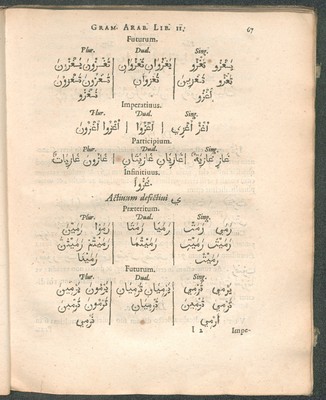 GRAM. ARAB. LIB. II. 67
Futurum.
Plur. Dual. Sing.
يَغْزُو تَغْزُو | يَغْزُوَانِ تَغْزُوَانِ | يَغْزُونَ يَغْزُونَ
تَغْزُو تَغْزِينَ | تَغْزُوَانِ | تَغْزُونَ تَغْزُونَ
أَغْزُو | نَغْزُو
Imperatiuus.
Plur. Dual. Sing.
أُغْزُ أُغْزِي | أُغْزُوَا | أُغْزُوا أُغْزُونَ
Participium.
Plur. Dual. Sing.
غَازٍ غَازِيَةٌ | غَازِيَانِ غَازِيَتَانِ | غَازُونَ غَازِيَاتٌ
Infinitiuus.
غَزْوًا
Actiuum defectiui ي
Præteritum.
Plur. Dual. Sing.
رَمَى رَمَتْ | رَمَيَا رَمَتَا | رَمَوْا رَمَيْنَ
رَمَيْتَ رَمَيْتِ | رَمَيْتُمَا | رَمَيْتُمْ رَمَيْتُنَّ
رَمَيْتُ | رَمَيْنَا
Futurum.
Plur. Dual. Sing.
يَرْمِي تَرْمِي | يَرْمِيَانِ تَرْمِيَانِ | يَرْمُونَ يَرْمِينَ
تَرْمِي تَرْمِينَ | تَرْمِيَانِ | تَرْمُونَ تَرْمِينَ
أَرْمِي | نَرْمِي
Impe-